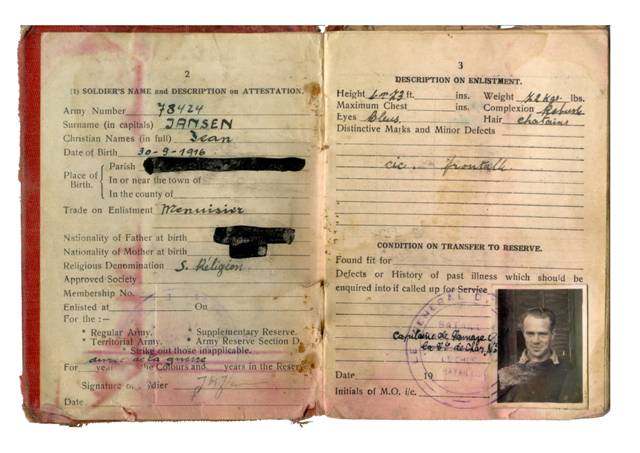 2
(1) SOLDIER'S NAME and DESCRIPTION on ATTESTATION.
Army Number 78424
Surname (in capitals) JANSEN
Christian Names (in full) Jean
Date of Birth 30-9-1916
Place of Birth.
Parish
In or near the town of
In the county of
Trade on Enlistment Menuisier
Nationality of Father at birth
Nationality of Mother at birth
Religious Denomination S. Religion
Approved Society
Membership No.
Enlisted at On
For the :—
* Regular Army. * Supplementary Reserve.
* Territorial Army. * Army Reserve Section D.
* Strike out those inapplicable.
durée de la guerre
For year the Colours and years in the Reserve
Signature of Soldier
Date
3
DESCRIPTION ON ENLISTMENT.
Height 1m73 ft. ins. Weight 72 Kgr. lbs.
Maximum Chest ins. Complexion Robuste
Eyes Bleus Hair chatains
Distinctive Marks and Minor Defects
cic. frontale
CONDITION ON TRANSFER TO RESERVE.
Found fit for
Defects or History of past illness which should be
enquired into if called up for Service
LE GENERAL
Capitaine de
de Char
Date 19
Initials of M.O. i/c.